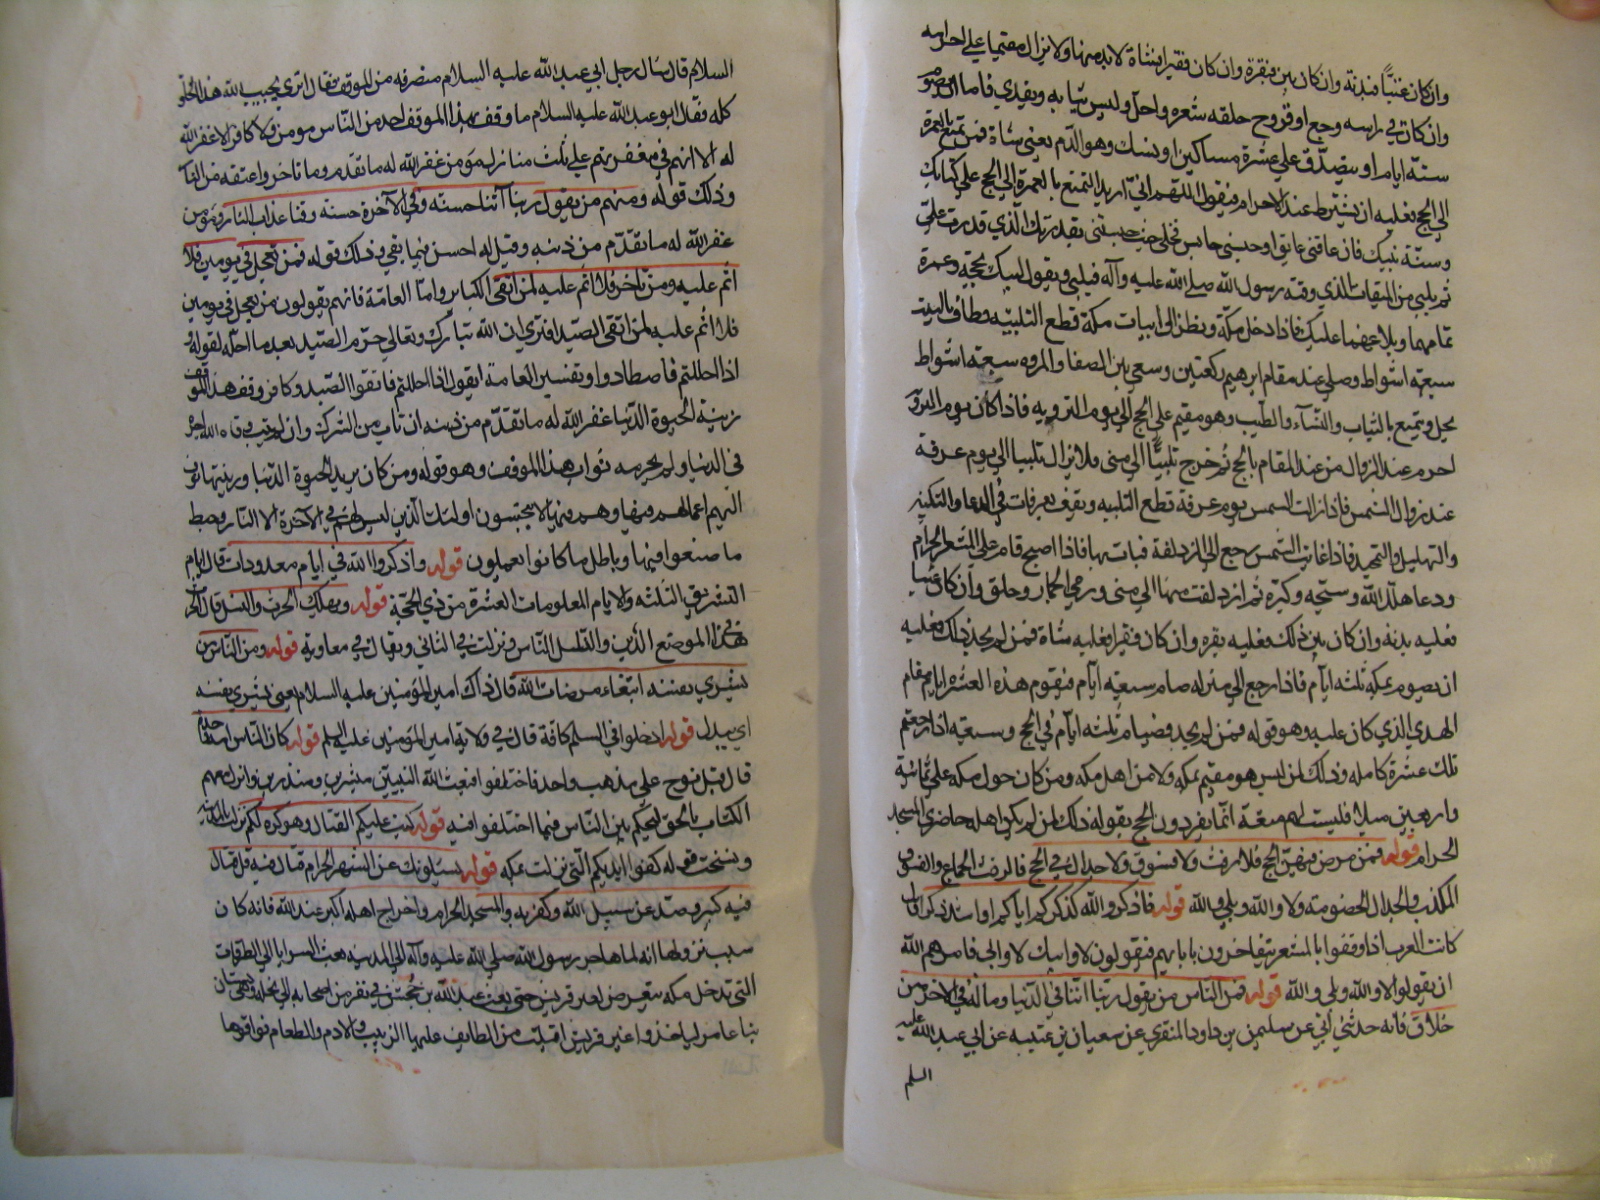 وان كان غنيّاً فبدنة وان كان بين فبقرة وان كان فقيرا فشاة لا بد منها ولا يزال مقيما علي احرامه
وان كان في راسه وجع او قروح حلقه شعره واحل ولبس ثيابه ويفدي فاما ان يصوم
ستة ايام او يتصدق علي عشرة مساكين او ينسك وهو الدم يعني شاة فمن تمتع بالعمرة
الي الحج فعليه ان يشترط عند الاحرام فيقول اللّهم انّي اريد التمتع بالعمرة الي الحج علي كتابك
وسنّة نبيك فان عاقني عايق او حبسني حابس فحلني حيث حبستني بقدرتك الذي قدرت عليّ
ثم يلبي من الميقات الذي وقته رسول الله صلي الله عليه وآله فيلبي ويقول لبيك بحجة وعمرة
تمامهما وبلاغهما عليك فاذا دخل مكّة ونظر الي ابيات مكة قطع التلبيه وطاف بالبيت
سبعة اشواط وصلي عند مقام ابرهيم ركعتين وسعي بين الصفا والمروه سبعة اشواط
يحل ويتمتع بالثياب والنساء والطيب وهو مقيم علي الحج الي يوم الترويه فاذا كان يوم التروية
احرم عند الزوال من عند المقام بالحج ثم خرج تلبيّاً الي مني فلا يزال تلبيا الي يوم عرفة
عند زوال الشمس فاذا زالت الشمس يوم عرفة قطع التلبيه ويقف بعرفات في الدعا والتكبير
والتهليل والتحميد فاذا غابت الشمس رجع الي المزدلفة فبات بها فاذا اصبح قام علي المشعر الحرام
ودعا هلّل الله وسبّحه وكبّره ثم ازدلفت منها الي مني ورمي الجمار وحلق وان كان غنيا
فعليه بدنه وان كان بين ذلك فعليه بقره وان كان فقيرا فعليه شاة فمن لم يجد ذلك فعليه
ان يصوم بمكّة ثلثه ايام فاذا رجع الي منزله صام سبعة ايام فيقوم هذه العشرة ايام مقام
الهدي الذي كان عليه وهو قوله فمن لم يجد فصيام ثلثه ايام في الحج وسبعة اذا رجعتم
تلك عشرة كامله وذلك لمن ليس هو مقيم بمكه ولا من اهل مكه ومن كان حول مكه علي ثمانية
واربعين ميلا فليست لهم متعة انّما يفردون الحج بقوله ذلك لمن لم يكن اهله حاضري المسجد
الحرام قوله فمن فرض فيهنّ الحج فلا رفث ولا فسوق ولا جدال في الحج فالرفث الجماع والفسوق
الكذب والجدال الخصومته ولا والله وبلي والله قوله فاذكروا الله كذكركم اباكم او اشد ذكرا قال
كانت العرب اذا وقفوا بالمشعر يتفاخرون باباىهم فيقولون لا وابيك لا وابي فامرهم الله
ان يقولوا لا والله وبلي والله قوله فمن النّاس من يقول ربّنا اتنا في الدّنيا وما له في الاخرة من
خلاق فانه حدثني ابي عن سليمن بن داود المنقري عن سفيان بن عتيبه عن ابي عبد الله عليه
السلم
السلام قال سال رجل ابي عبد الله عليه السلام منصرفه من الموقف فقال اتري يجيب الله هذا الخلق
كله فقال ابو عبد الله عليه السلام ما وقف بهذا الموقف احد من النّاس مومن ولا كافر الا غفر الله
له الا انهم في مغفرتهم علي ثلث منازل مؤمن غفر الله له ما تقدّم وما تاخر واعتقه من النار
وذلك قوله ومنهم من يقول ربنا آتنا حسنه وفي الآخرة حسنه وقنا عذاب النار ومؤمن
غفر الله له ما تقدّم من ذنبه وقيل له احسن فيما بقي وذلك قوله فمن تعجل في يومين فلا
اثم عليه ومن تاخر فلا اثم عليه لمن اتقي الكباير وامّا العامّة فانهم يقولون من تعجل في يومين
فلا اثم عليه لمن اتقي الصّيد افتري ان الله تبارك وتعالي حرّم الصّيد بعد ما احلّه لقوله
اذا احللتم فاصطادوا وتفسير العامة يقول اذا احللتم فاتقوا الصّيد وكافر وقف هذا الموقف
زينة الحيوة الدّنيا غفر الله له ما تقدّم من ذنبه ان تاب من الشرك وان لم يتب وفاه الله اجره
في الدنيا ولم يحرمه ثواب هذا الموقف وهو قوله ومن كان يريد الحيوة الدّنيا وزينتها نوف
اليهم اعمالهم فيها وهم فيها لا يبخسون اولئك الّذين ليس لهم في الآخرة الا النّار وحبط
ما صنعوا فيها وباطل ما كانوا يعملون قوله واذكروا الله في ايام معدودات قال ايام
التشريق الثلثه والايام المعلومات العشرة من ذي الحجّة قوله ويهلك الحرث والنسل قال الحرث
في هذا الموضع الدّين والنسل النّاس ونزلت في الثاني ويقال في معاوية قوله ومن النّاس من
يشري نفسه ابتغاء مرضات الله قال ذاك امير المؤمنين عليه السلام يعني يشري نفسه
اي يبذل قوله ادخلوا في السلم كافة قال في ولاية امير المؤمنين عليه السلم قوله كان النّاس امة واحدة
قال قبل نوح علي مذهب واحد فاختلفوا فبعث الله النبيّين مبشرين ومنذرين وانزل معهم
الكتاب بالحق ليحكم بين النّاس فيما اختلفوا فيه قوله كتب عليكم القتال وهو كره لكم نزلت بالمدينة
ونسخت قوله كفوا ايديكم الّتي نزلت بمكه قوله يسئلونك عن الشهر الحرام قتال فيه قل قتال
فيه كبير وصد عن سبيل الله وكفر به والمسجد الحرام واخراج اهله اكبر عند الله فانه كان
سبب نزولها انه لما هاجر رسول الله صلي الله عليه وآله الي المدينه بعث السرايا الي الطرقات
التي تدخل مكه تتعرض لعير قريش حتي بعث عبد الله بن جحش في نفر من اصحابه الي نخله وهي بستان
بنا عامر لياخذوا عير قريش اقبلت من الطايف عليها الزبيب والادم والطعام فوافوها